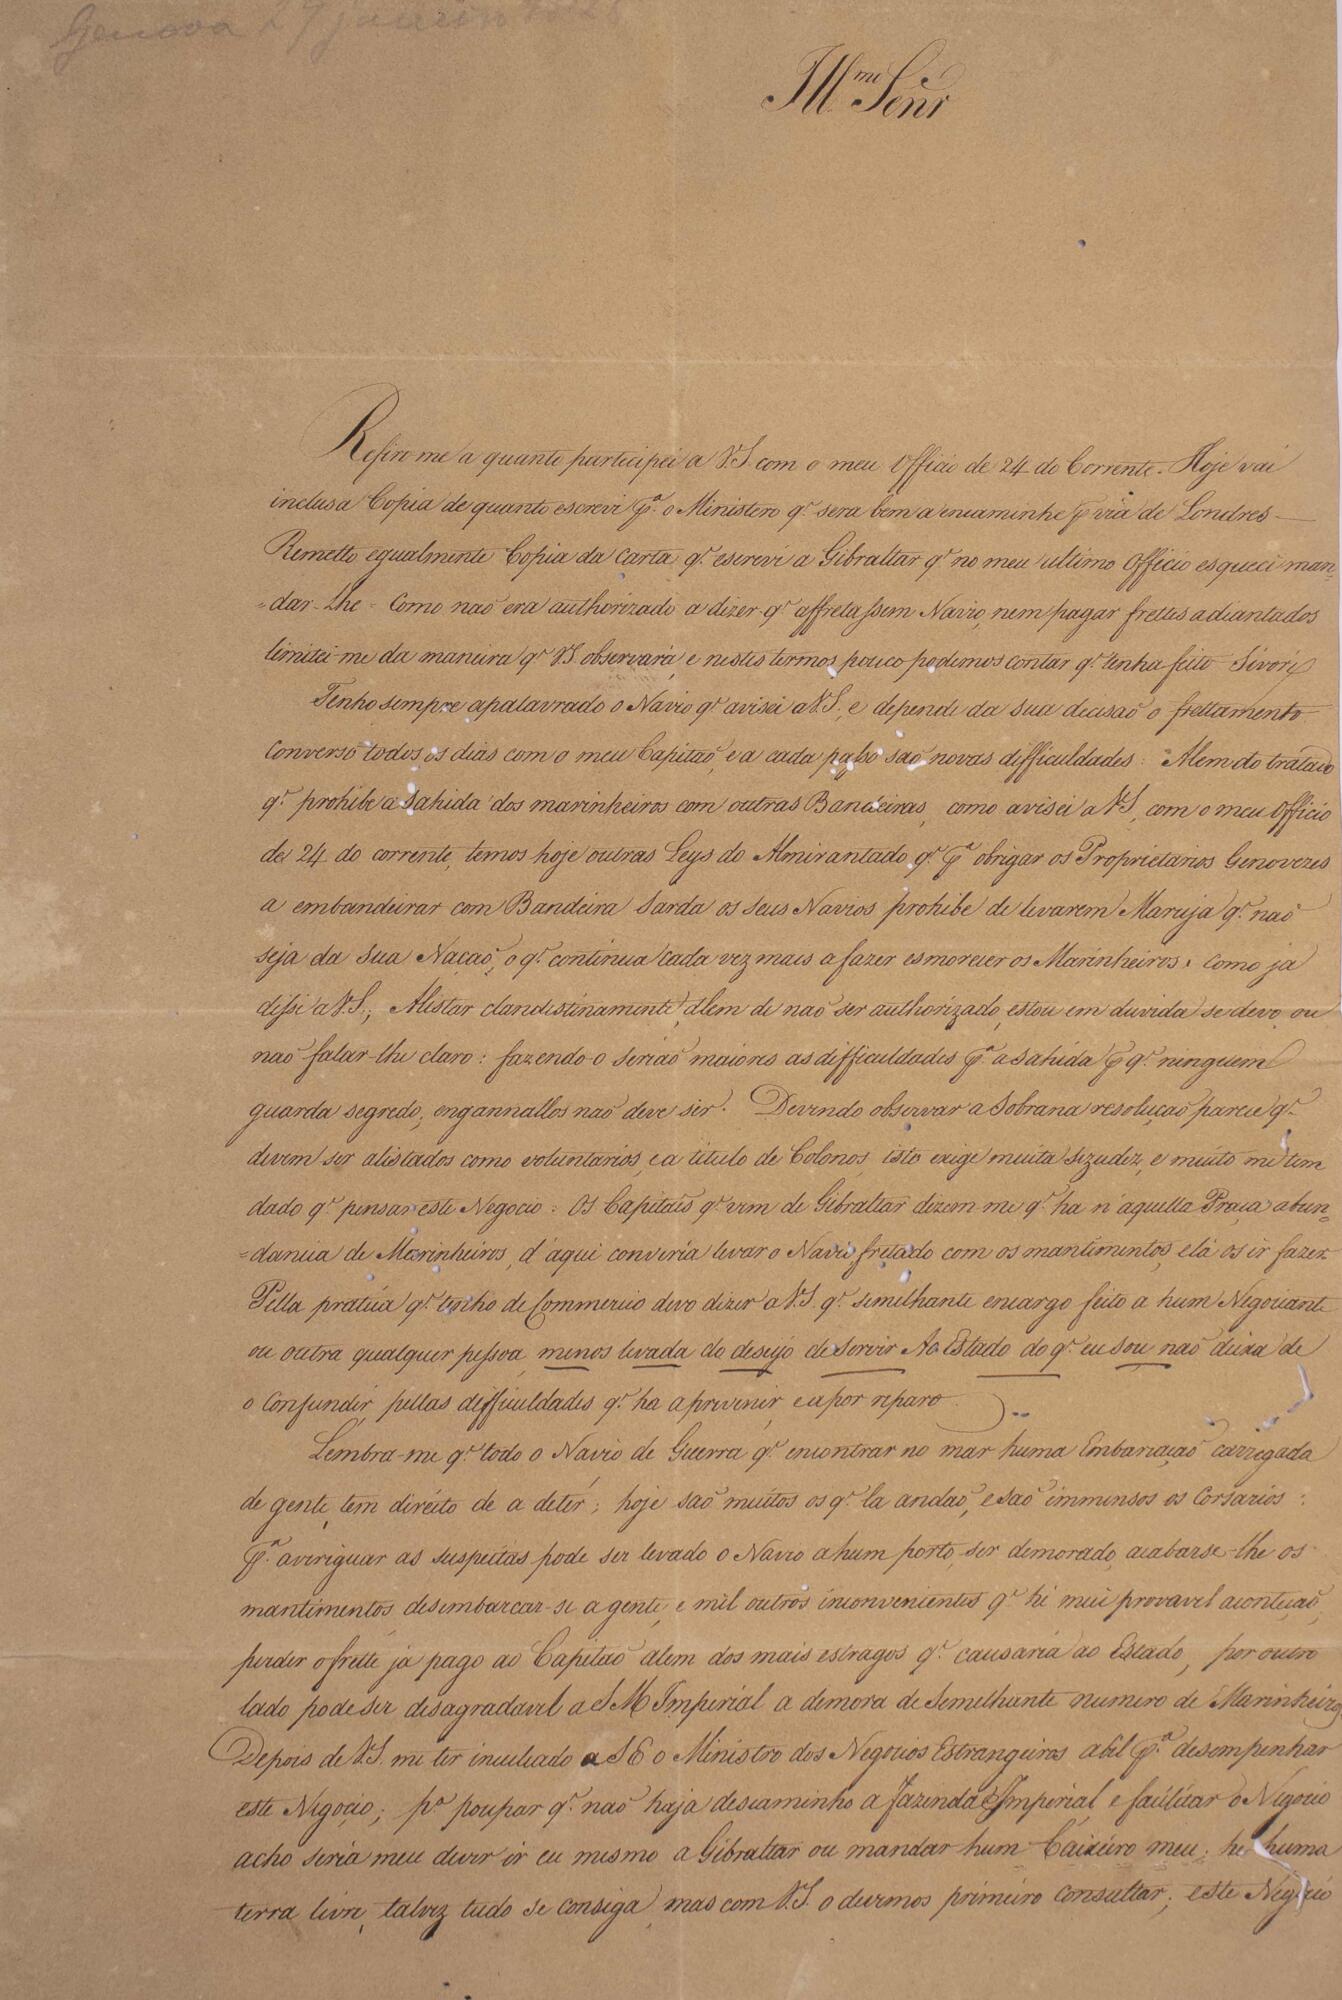 Genova 27 janeiro
Ill.mo Senr
Refiro-me a quanto participei a V.S. com o meu Officio de 24 do Corrente. Hoje vai
inclusa Copia de quanto escrevi p.a o Ministero q.' sera bem a encaminhe p via de Londres —
Remetto egualmente Copia da carta q.' escrevi a Gibraltar q.' no meu ultimo Officio esqueci man=
=dar-lhe = Como naõ era authorizado a dizer q.' affretassem Navio, nem pagar frettes adiantados
limitei-me da maneira q.' V.S. observará, e nestes termos pouco podemos contar q.' tenha feito Sivori
Tenho sempre apalavrado o Navio q.' avisei a V.S., e depende da sua decisaõ o frettamento.
Converso todos os dias com o meu Capitaõ, e a cada passo saõ novas difficuldades: Alem do tratado
q.' prohibe a sahida dos marinheiros com outras Bandeiras, como avisei a V.S, com o meu Officio
de 24 do corrente, temos hoje outras Leys do Almirantado, q.' p.a obrigar os Proprietarios Genovezes
a embandeirar com Bandeira Sarda os seus Navios prohibe de levarem Maruja q.' naõ
seja da sua Naçaõ, o q.' continua cada vez mais a fazer esmorecer os Marinheiros: como ja
disse a V.S.; Alistar clandestinamente, alem de naõ ser authorizado, estou em duvida se devo, ou
naõ falar-lhe claro: fazendo-o seriaõ maiores as difficuldades p.a a sahida p q.' ninguem
guarda segredo, engannallos naõ deve ser. Devendo observar a Sobrana resoluçaõ parece q.'
devem ser alistados como voluntarios, e a titulo de Colonos, isto exige muita sezudez, e muito me tem
dado q.' pensar este Negocio: Os Capitaẽs q.' vem de Gibraltar dizem-me q.' ha n'aquella Praça abun=
=dancia de Marinheiros, d'aqui conviria levar o Navio fretado com os mantimentos, e lá os ir fazer.
Pella pratica q.' tenho de Commercio devo dizer a V.S. q.' semelhante encargo feito a hum Negociante
ou outra qualquer pessoa, menos levada do desejo de servir Ao Estado do q.' eu sou naõ deixa de
o Confundir, pellas difficuldades q.' ha a prevenir, e a por reparo.
Lembra-me q.' todo o Navio de Guerra q.' encontrar no mar huma Embarcaçaõ carregada
de gente, tem direito de a deter; hoje saõ muitos os q.' la andaõ, e saõ immensos os Corsarios:
p.a aviriguar as suspeitas pode ser levado o Navio a hum porto, ser demorado, acabarse-lhe os
mantimentos, desembarcar-se a gente, e mil outros inconvenientes q.' he mui provavel aconteçaõ,
perder o frette já pago ao Capitaõ alem dos mais estragos q.' causaria ao Estado, por outro
lado pode ser desagradavel a S M Imperial a demora de semelhante numero de Marinheiros
Depois de V.S. me ter inculcado a S E o Ministro dos Negocios Estrangeiros abil p.a desempenhar
este Negocio; p.a poupar q.' naõ haja descaminho a Fazenda Imperial, e facilitar o Negocio
acho seria meu dever ir eu mesmo a Gibraltar ou mandar hum Caixeiro meu; he huma
terra livre, talvez tudo se consiga, mas com V.S. o devemos primeiro consultar; este Negocio